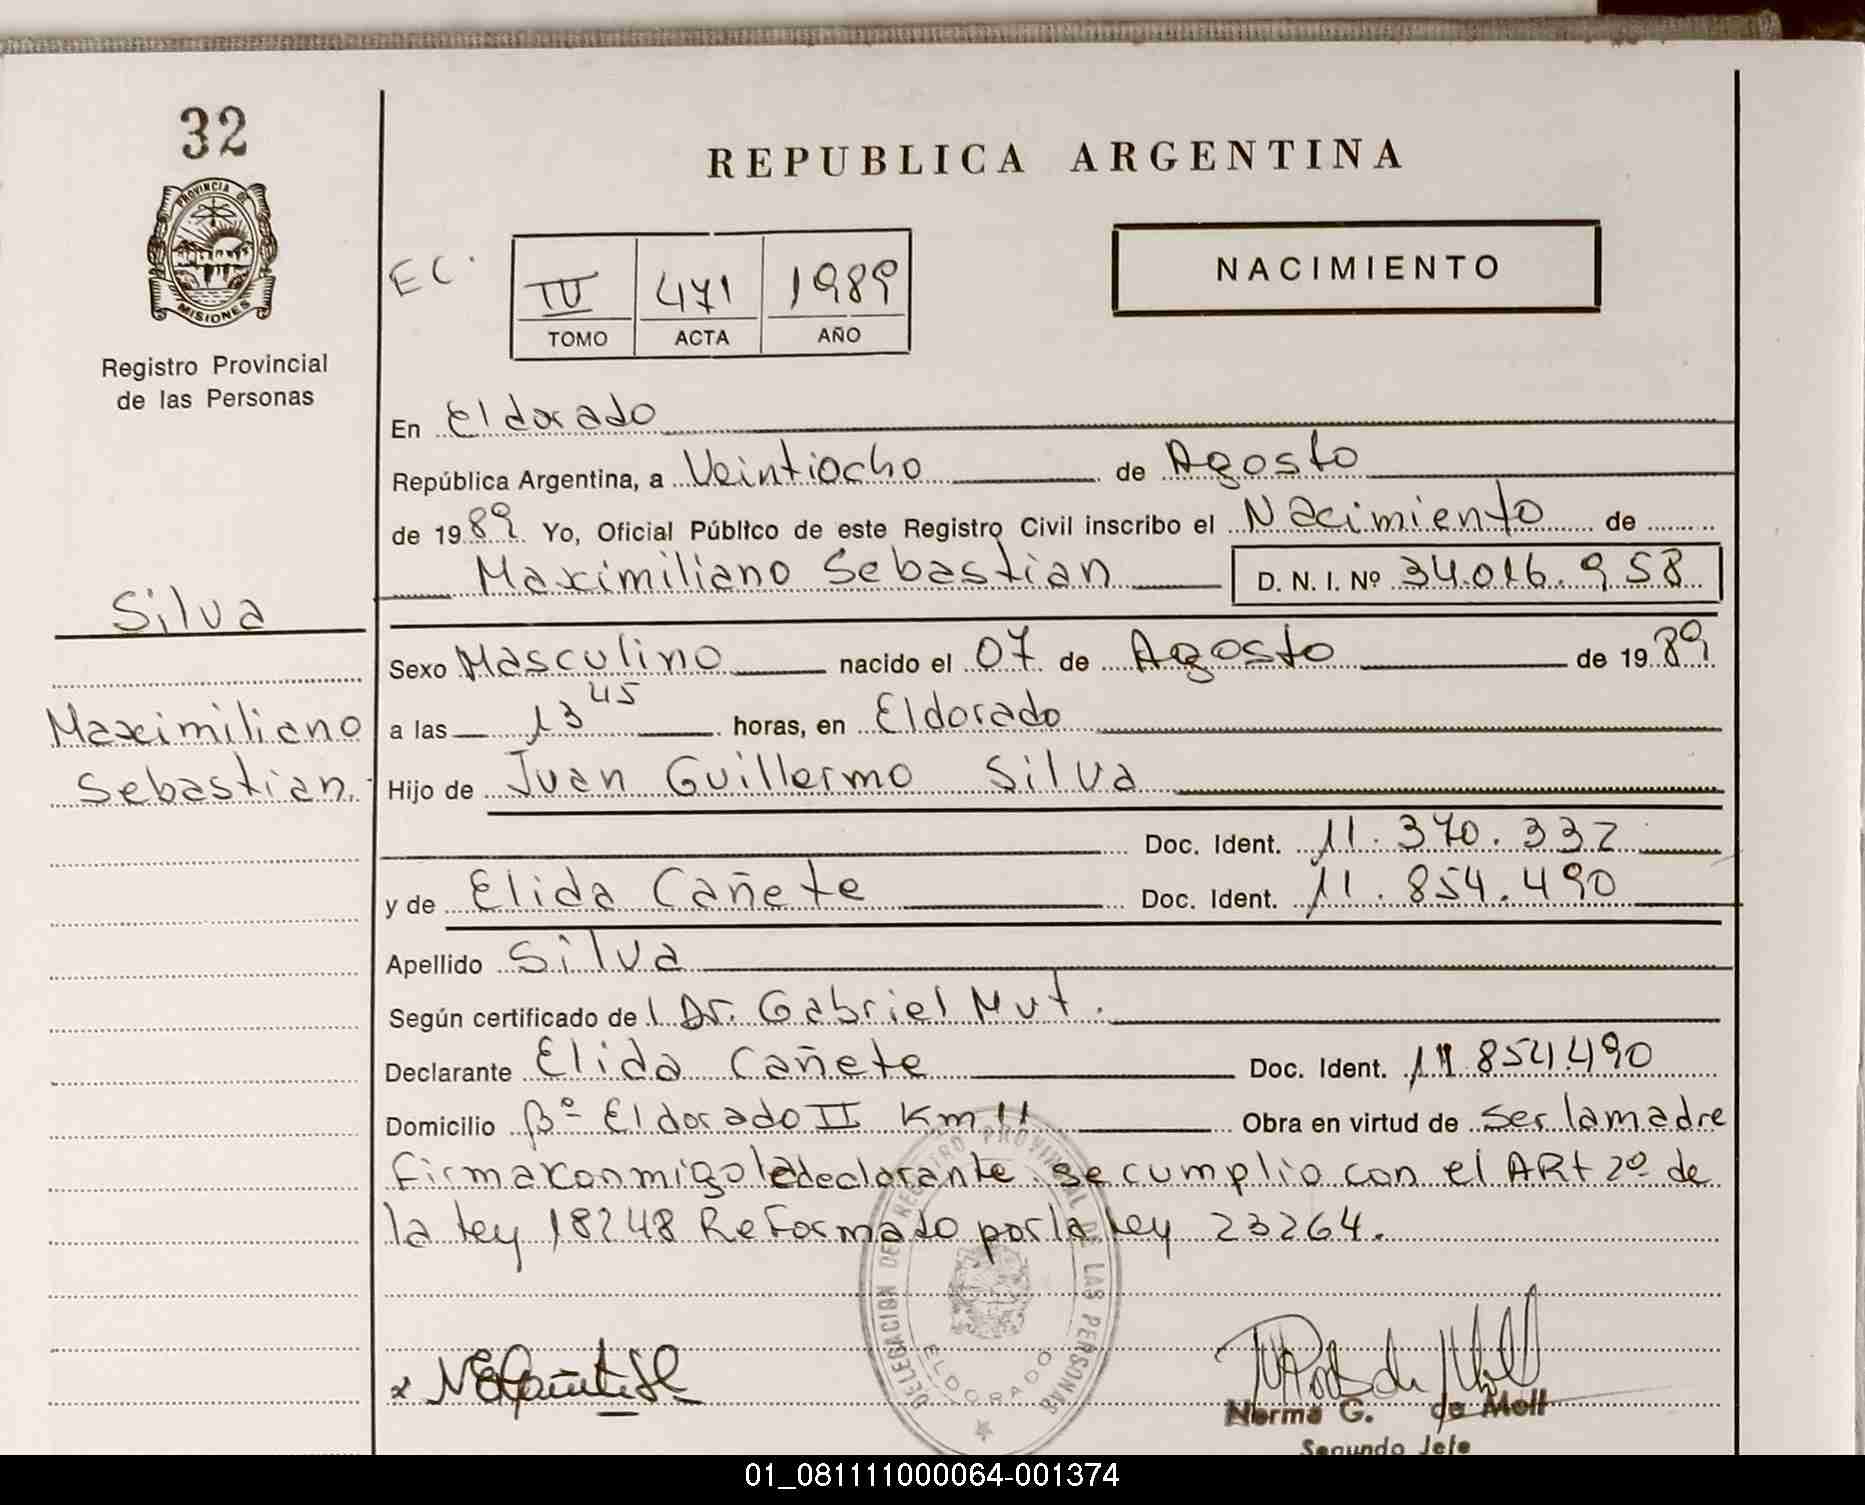 32
PROVINCIA DE
MISIONES
Registro Provincial
de las Personas
REPUBLICA ARGENTINA
EC.
IV 471 1989
TOMO ACTA AÑO
NACIMIENTO
En Eldorado
República Argentina, a Veintiocho de Agosto
de 1989 Yo, Oficial Público de este Registro Civil inscribo el Nacimiento de
Maximiliano Sebastian D. N. I. Nº 34.016.958
Silva
Maximiliano
Sebastian.
Sexo Masculino nacido el 07 de Agosto de 1989
a las 13 45 horas, en Eldorado
Hijo de Juan Guillermo Silva
Doc. Ident. 11.370.332
y de Elida Cañete Doc. Ident. 11.854.490
Apellido Silva
Según certificado del Dr. Gabriel Mut.
Declarante Elida Cañete Doc. Ident. 11.854.490
Domicilio Bº Eldorado II Km 11 Obra en virtud de Ser la madre
firma conmigo la declarante. se cumplio con el ARt 2º de
la ley 18248 Reformado por la ley 23264.
DELEGACION DEL REGISTRO PROVINCIAL DE LAS PERSONAS
ELDORADO
Norma G. de Moll
Segundo Jefe
01_081111000064-001374